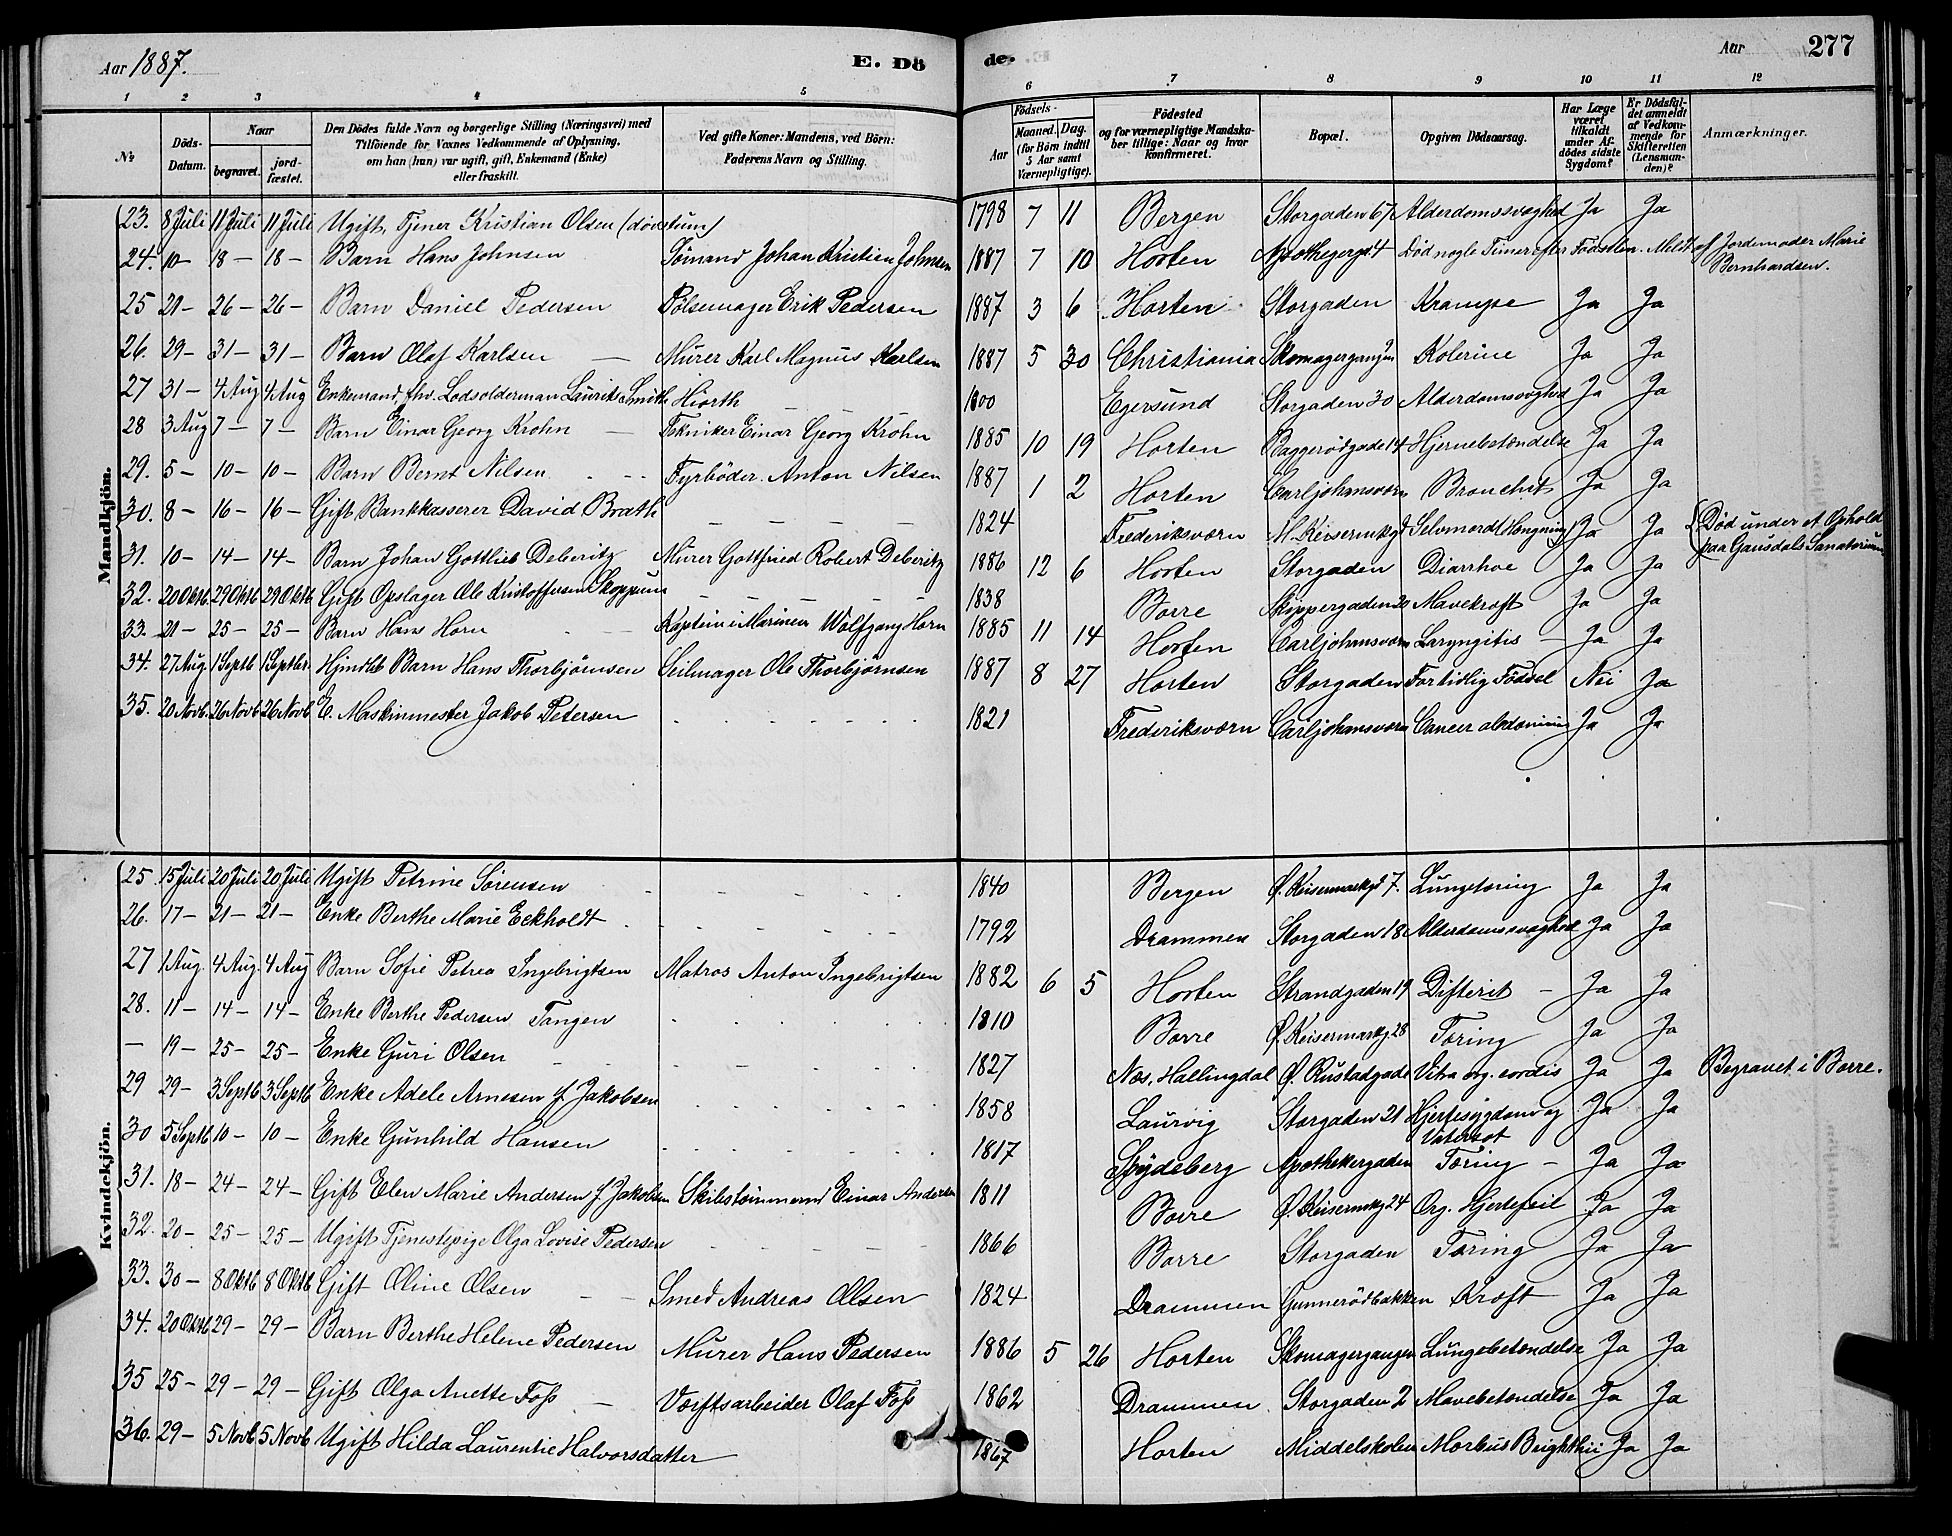 Aar 1887. E. Dö de. Aar 277
1 2 3 4 5 6 7 8 9 10 11 12
No. Döds-Datum. Naar begravet. jord-fæstet. Den Dödes fulde Navn og borgerlige Stilling (Næringsvei) med Tilföiende for Voxnes Vedkommende af Oplysning, om han (hun) var ugift, gift, Enkemand (Enke) eller fraskilt. Ved gifte Koner: Mandens, ved Börn: Faderens Navn og Stilling. Födsels- Aar Maaned. Dag. (for Börn indtil 5 Aar samt Værnepligtige). Födested og for værnepligtige Mandskaber tillige: Naar og hvor konfirmeret. Bopæl. Opgiven Dödsaarsag. Har Læge været tilkaldt under Afdödes sidste Sygdom? Er Dödsfaldet anmeldt af Vedkommende for Skifteretten (Lensmanden)? Anmærkninger.
Mandkjön.
23. 8 Juli 11 Juli 11 Juli Ugift, Tjener Kristian Olsen (døvstum) 1798 7 11 Bergen Storgaden 67 Alderdomssvaghed Ja Ja
24. 10 – 18 – 18 – Barn Hans Johnsen Sömand Johan Kristian Johnsen 1887 7 10 Horten Apothegergd 4 Död nogle Timer efter Födselen. Meldt af Jordemoder Marie Bernhardsen.
25 21 – 26 – 26 – Barn Daniel Pedersen Pölsemager Erik Pedersen 1887 3 6 Horten Storgaden Krampe Ja Ja
26. 29 – 31 – 31 – Barn Olaf Karlsen – Murer Karl Magnus Karlsen 1887 5 30 Christiania Skomagergangen Kolerine Ja Ja
27 31 – 4 Aug 4 Aug Enkemand, fhv. Lodsolderman Laurits Smith Hiorth 1800 Egersund Storgaden 30 Alderdomssvaghed Ja Ja
28 3 Aug 7 – 7 – Barn Einar Georg Krohn – Tekniker Einar Georg Krohn 1885 10 19 Horten Baggerödgade 14 Hjernebetændelse Ja Ja
29. 5 – 10 – 10 – Barn Bernt Nilsen Fyrböder Anton Nilsen 1887 1 2 Horten Carljohansværn Bronchit Ja Ja
30. 8 – 16 – 16 – Gift Bankkasserer David Bræth 1824 Frederiksværn Selvmord (Hængning) Ja Ja Död under et Ophold paa Gausdals Sanatorium
31. 10 – 14 – 14 – Barn Johan Gottlieb Deberitz Murer Gottfried Robert Deberitz 1886 12 6 Horten Storgaden Diarrhoe Ja Ja
32. 20 Oktb. 29 Oktb 29 Oktb Gift Opslager Ole Kristoffersen Skoppum 1838 Borre Skippergaden 20 Mavekræft Ja Ja
33. 21 – 25 – 25 – Barn Hans Horn Kaptein i Marinen Wolfgang Horn 1885 11 14 Horten Carljohansværn Laryngitis – Ja Ja
34. 27 Aug. 1 Septb 1 Septbr. Hjmdbt Barn Hans Thorbjörnsen Seilmager Ole Thorbjörnsen 1887 8 27 Horten Storgaden For tidlig Födsel Nei Ja
35. 20 Novb. 26 Novb 26 Novb E. Maskinmester Jakob Petersen 1821 Frederiksværn Carljohansværn Cancer abdominis Ja Ja
Kvindekjön.
25. 15 Juli 20 Juli 20 Juli Ugift Petrine Sörensen 1840 Bergen Ö. Keisermarkgd 7. Lungetæring Ja Ja
26. 17 – 21 – 21 – Enke Berthe Marie Eckholdt 1792 Drammen Storgaden 18 Alderdomssvaghed Ja Ja
27 1 Aug. 4 Aug. 4 Aug Barn Sofie Petrea Ingebrigtsen Matros Anton Ingebrigtsen 1882 6 5 Horten Strandgaden 19 Difterit – Ja Ja
28. 11 – 14 – 14 – Enke Berthe Pedersen Tangen 1810 Borre Ö. Keisermarkg. 28 Tæring Ja Ja
– 19 – 25 – 25 – Enke Guri Olsen 1827 Næs, Hallingdal Ö. Rustadgade Vitia org. cordis Ja Ja Begravet i Borre.
29 29 – 3 Septb 3 Septb Enke Adele Arnesen f. Jakobsen 1858 Laurvig Storgaden 21 Hjertesygdom og Vatersot Ja Ja
30 5 Septb 10 – 10 – Enke Gunhild Hansen 1817 Spydeberg Apothekergaden Tæring – Ja Ja
31. 18 – 24 – 24 – Gift Elen Marie Andersen f. Jakobsen Skibstömmerm Einar Andersen 1811 Borre Ö. Keisermkg 24 Org. Hjertefeil Ja Ja
32. 20 – 25 – 25 – Ugift Tjenestepige Olga Lovise Pedersen 1866 Borre Storgaden Tæring Ja Ja
33. 30 – 8 Oktb 8 Oktb Gift Oline Olsen – Smed Andreas Olsen 1824 Drammen Gunnerödbakken Kræft Ja Ja
34. 20 Oktb 29 – 29 – Barn Berthe Helene Pedersen Murer Hans Pedersen 1886 5 26 Horten Skomagergangen Lungebetændelse Ja Ja
35 25 – 29 – 29 – Gift Olga Anette Foss – Værftsarbeider Olaf Foss 1862 Drammen Storgaden 2 Mavebetændelse Ja Ja
36. 29 – 5 Novb 5 Novb Ugift Hilda Laurentie Halvorsdatter 1867 Horten Middelskolen Morbus Brighthii Ja Ja